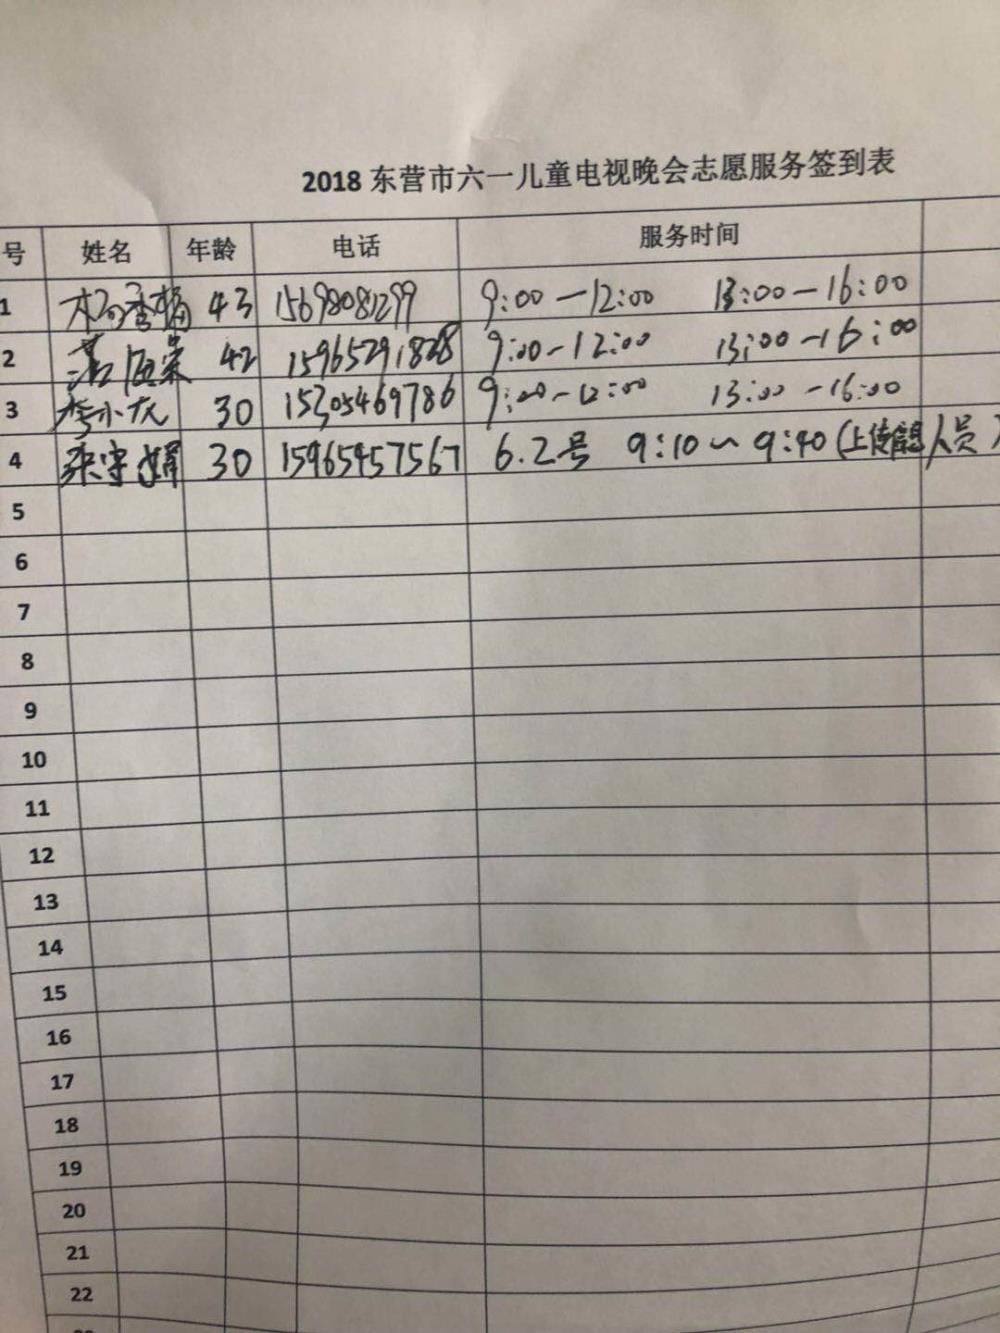 2018东营市六一儿童电视晚会志愿服务签到表
号 姓名 年龄 电话 服务时间
1 43 15698081299 9:00-12:00 13:00-16:00
2 42 15965291828 9:00-12:00 13:00-16:00
3 30 15305469786 9:00-12:00 13:00-16:00
4 30 15965957567 6.2号 9:10~9:40(上传信息人员
5
6
7
8
9
10
11
12
13
14
15
16
17
18
19
20
21
22